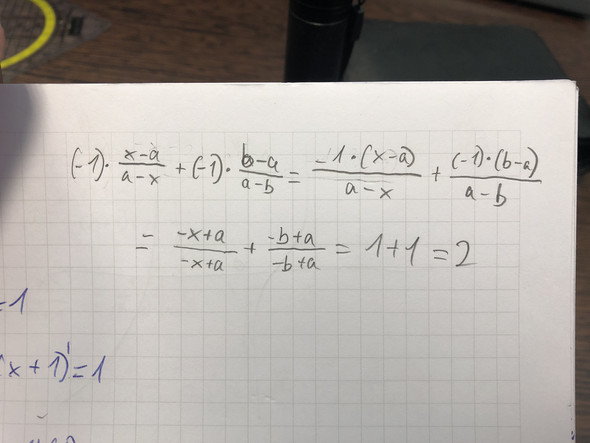 (-1)·(x-a)/(a-x) + (-1)·(b-a)/(a-b) = (-1·(x-a))/(a-x) + ((-1)·(b-a))/(a-b)
= (-x+a)/(-x+a) + (-b+a)/(-b+a) = 1+1 = 2
=1
(x+1)'=1